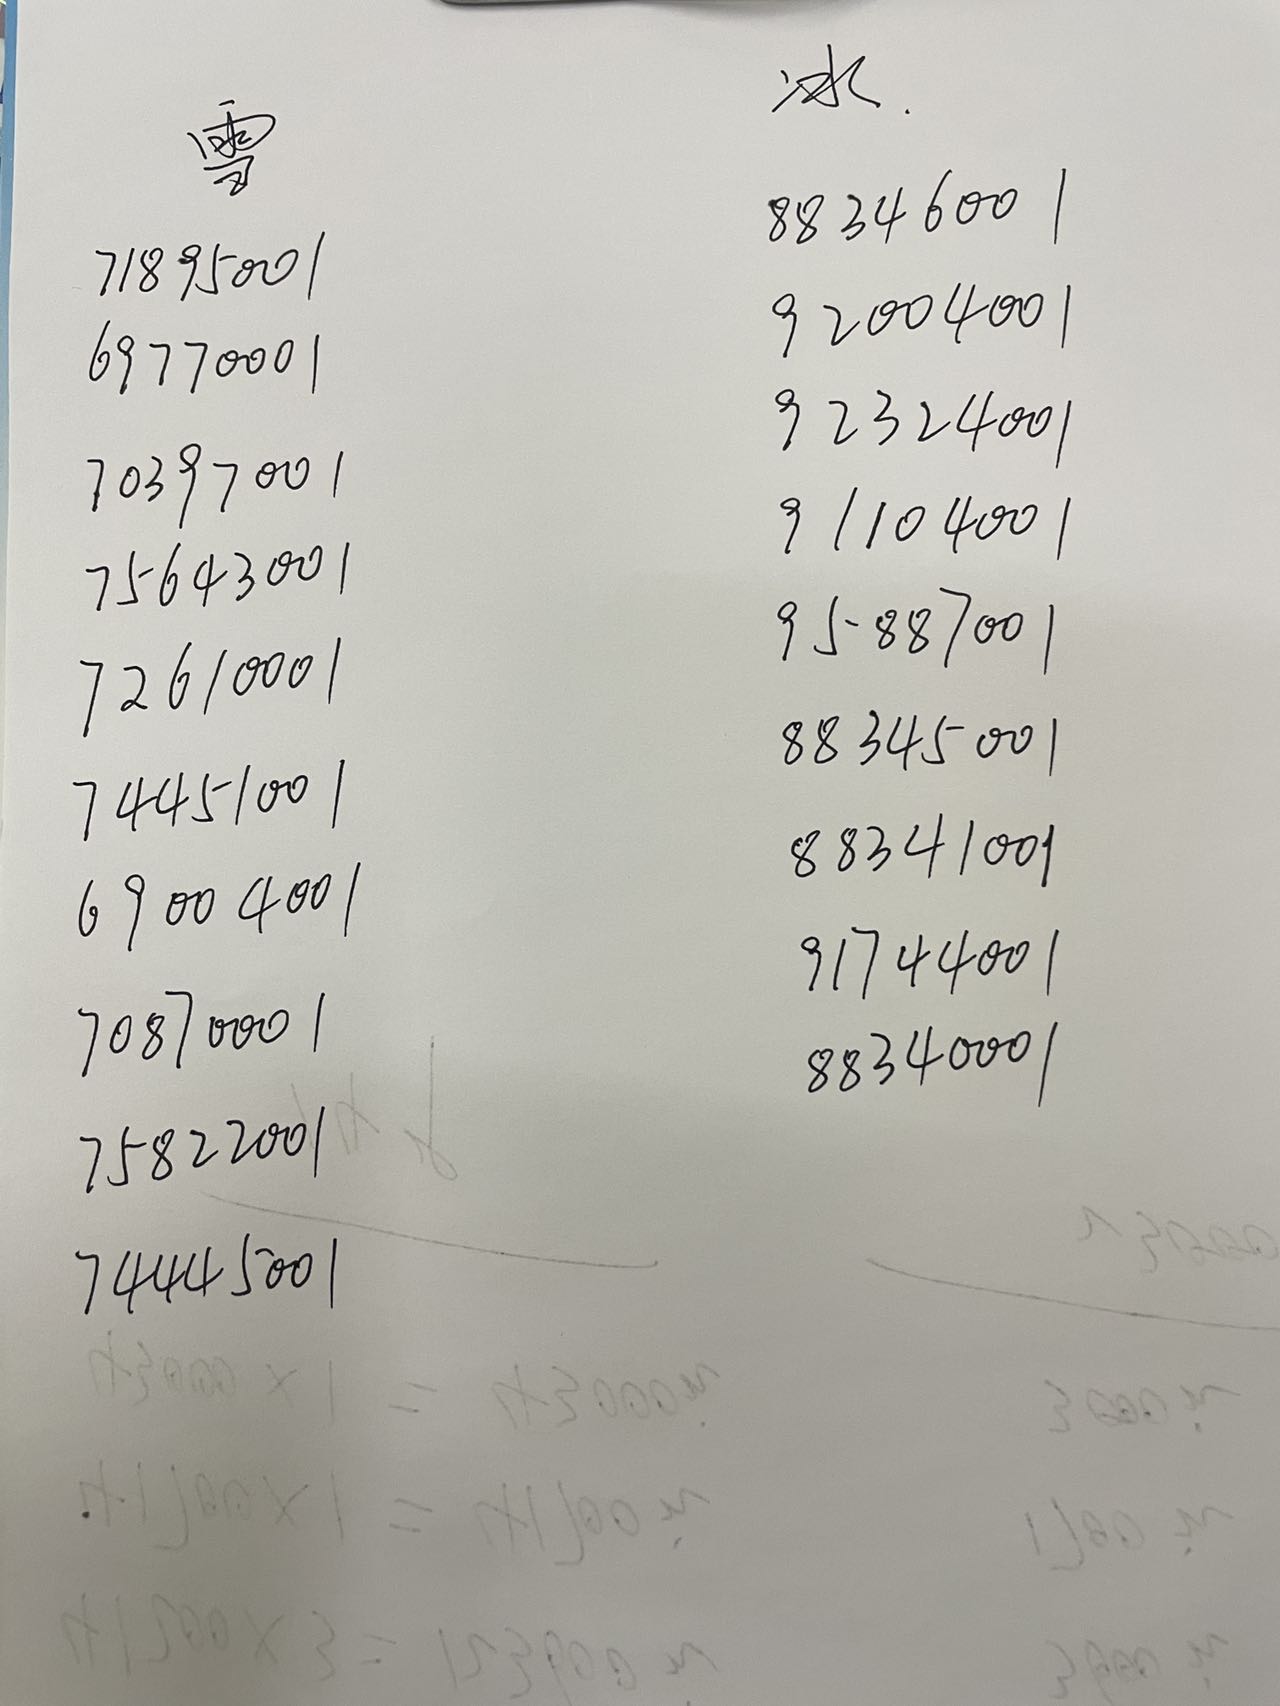 雪
71895001
69770001
70397001
75643001
72610001
74451001
69004001
70870001
75822001
74445001
冰.
88346001
92004001
92324001
91104001
95887001
88345001
88341001
91744001
88340001